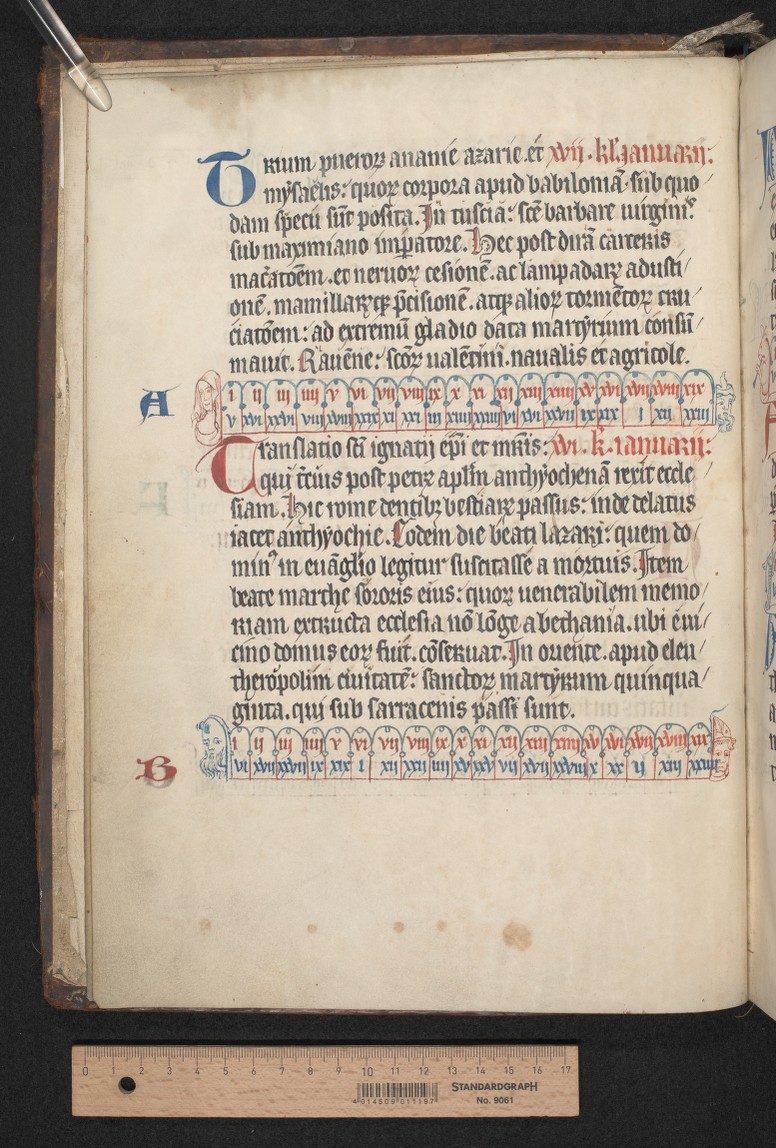 Trium pueroꝝ ananie azarie. et xvii. kl' ianuarij:
mysaelis: quoꝝ corpora apud babiloniā. sub quo
dam specu sūt posita. In tuscia: scē barbare uirginis.
sub maximiano imꝑatore. Hec post dirā carceris
macatōem. et neruoꝝ cesionē. ac lampadaꝝ adusti
onē. mamillaꝝqꝫ p̄cisionē. atqꝫ alioꝝ tormētoꝝ cru
ciatōem: ad extremū gladio data martyrium consū
mauit. Rauēne: scōꝝ ualētini. naualis et agricole.
i ii iii iiii v vi vii viii ix x xi xii xiii xiiii xv xvi xvii xviii xix
A
v xvi xxvi viii xviii xxix xi xxi iii xiiii xxiiii vi xvi xxvii ix xix i xii xxiii
Translatio scī ignatij ep̄i et mr̄is: xvi. k. ianuarij:
qui t̄cius post petrꝝ apl̄m anthyochenā rexit eccle
siam. Hic rome dentibꝫ bestiaꝝ passus: inde delatus
iacet anthyochie. Eodem die beati lazari: quem do
minꝰ in euāglio legitur suscitasse a mortuis. Item
beate marthe sororis eius: quoꝝ uenerabilem memo
riam extructa ecclesia nō lōge a bethania. ubi eui
cino domus eoꝝ fuit. cōseruat. In oriente. apud eleu
theropolim ciuitatē: sanctoꝝ martyrum quinqua
ginta. qui sub sarracenis passi sunt.
i ii iii iiii v vi vii viii ix x xi xii xiii xiiii xv xvi xvii xviii xix
B
vi xvii xxvii ix xix i xii xxii iiii xv xxv vii xvii xxviii x xx ii xiii xxiiii
0 1 2 3 4 5 6 7 8 9 10 11 12 13 14 15 16 17
4 014509 011197
STANDARDGRAPH
No. 9061